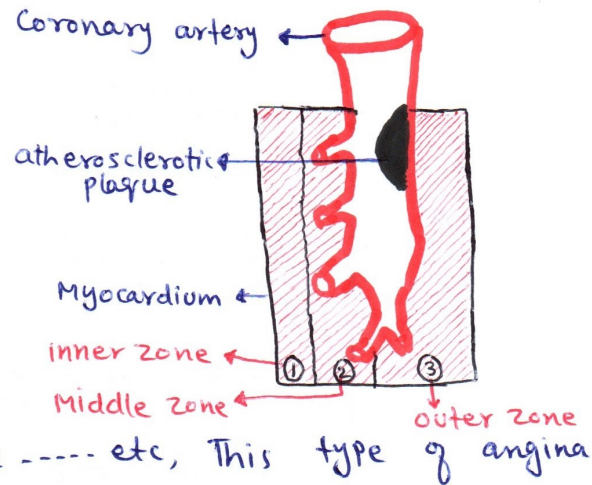 Coronary artery
atherosclerotic
plaque
Myocardium
inner zone
Middle zone
1 2 3
outer zone
----- etc, This type of angina